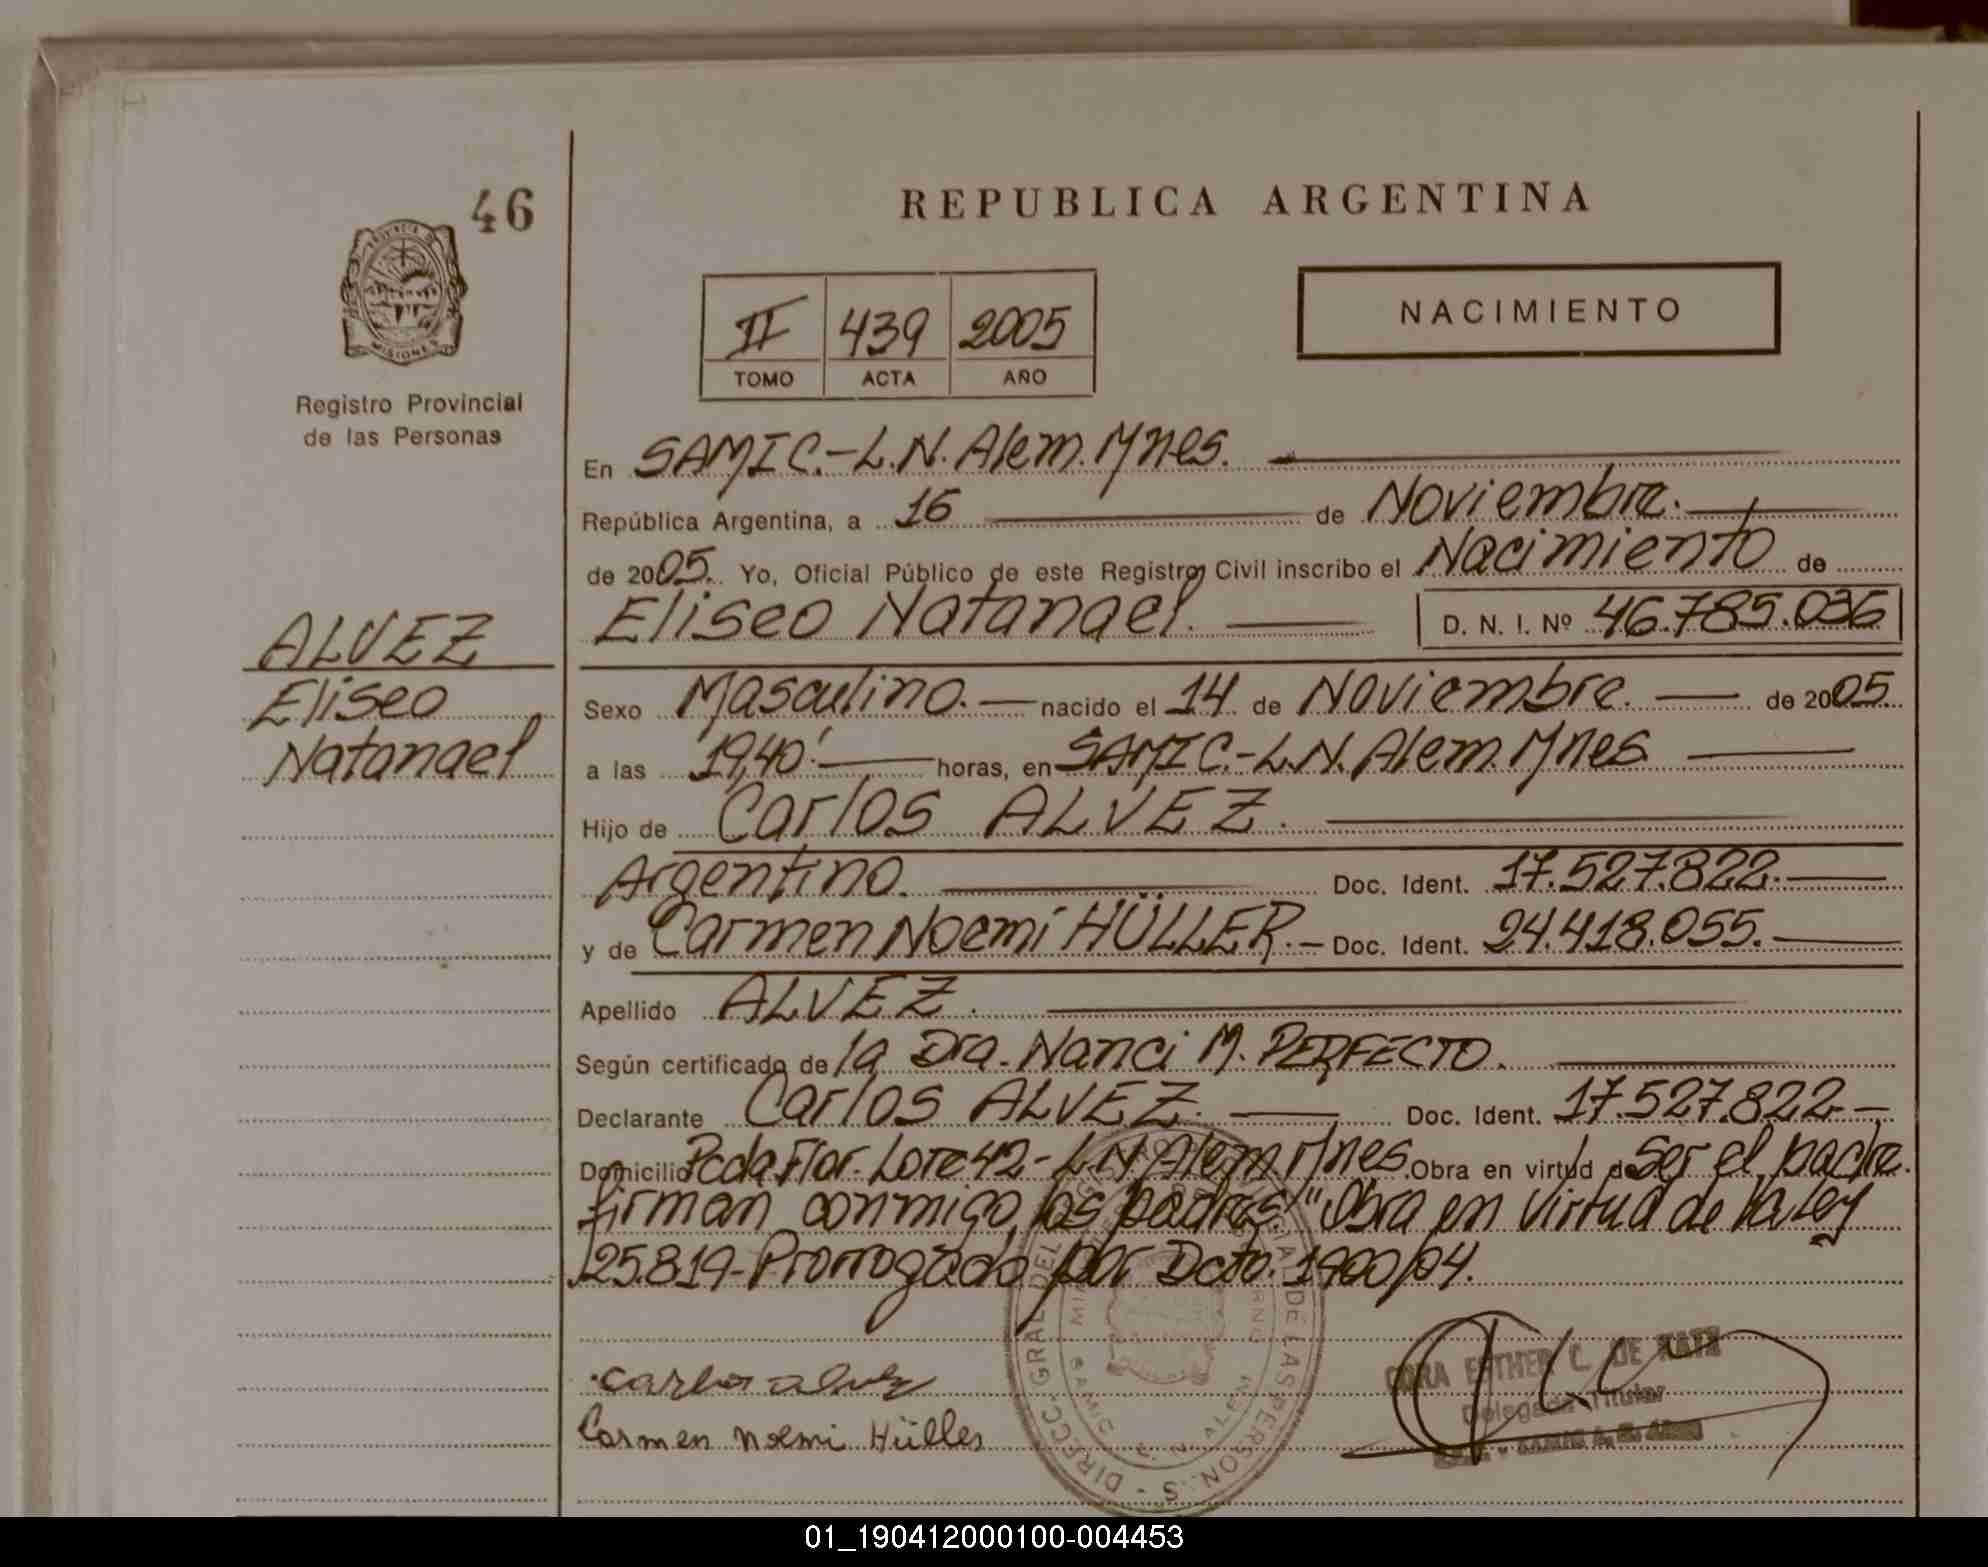 46
REPUBLICA ARGENTINA
PROVINCIA DE
MISIONES
Registro Provincial
de las Personas
II 439 2005
TOMO ACTA AÑO
NACIMIENTO
En SAMIC.-L.N.Alem.Mnes.
República Argentina, a 16 de Noviembre.
de 2005. Yo, Oficial Público de este Registro Civil inscribo el Nacimiento de
Eliseo Natanael. D. N. I. Nº 46.785.036
ALVEZ
Eliseo
Natanael
Sexo Masculino. nacido el 14 de Noviembre. de 2005.
a las 19,40' horas, en SAMIC.-L.N.Alem.Mnes
Hijo de Carlos ALVEZ.
Argentino. Doc. Ident. 17.527.822.
y de Carmen Noemí HÜLLER.- Doc. Ident. 24.418.055.
Apellido ALVEZ.
Según certificado de la Dra. Nanci M. PERFECTO.
Declarante Carlos ALVEZ. Doc. Ident. 17.527.822.-
Domicilio Pcda.Flor. Lote 42-L.N.Alem.Mnes. Obra en virtud de Ser el padre.
firman conmigo los padres." Obra en virtud de la Ley
25.819-Prorrogado por Dcto. 1900/04.
Carlos alvez
Carmen Noemi Hüller
DIRECC. GRAL DEL DE LAS PERSONAS
L. N. ALEM
CORA ESTHER C. DE KATZ
Delegada Titular
01_190412000100-004453